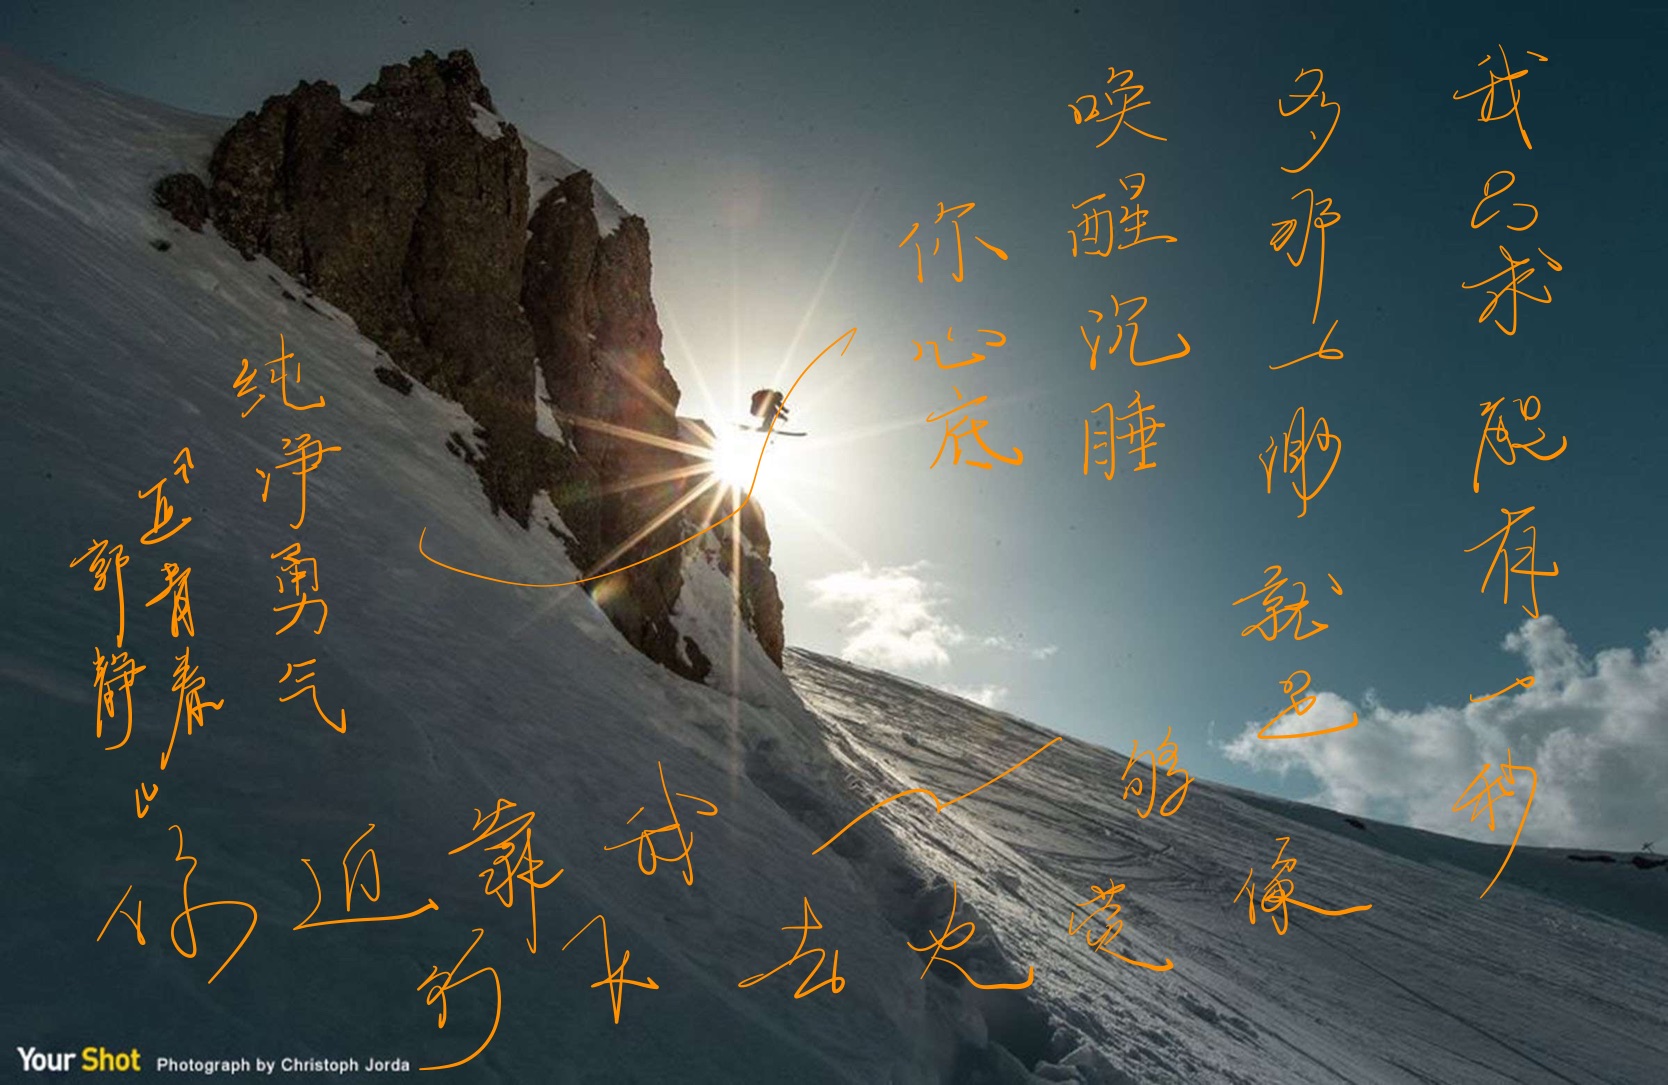 我只求能有一秒
多那一秒就足
唤醒沉睡
你心底
纯净勇气
「正青春」
郭静
够
我靠近你
像萤火
的
Your Shot Photograph by Christoph Jorda